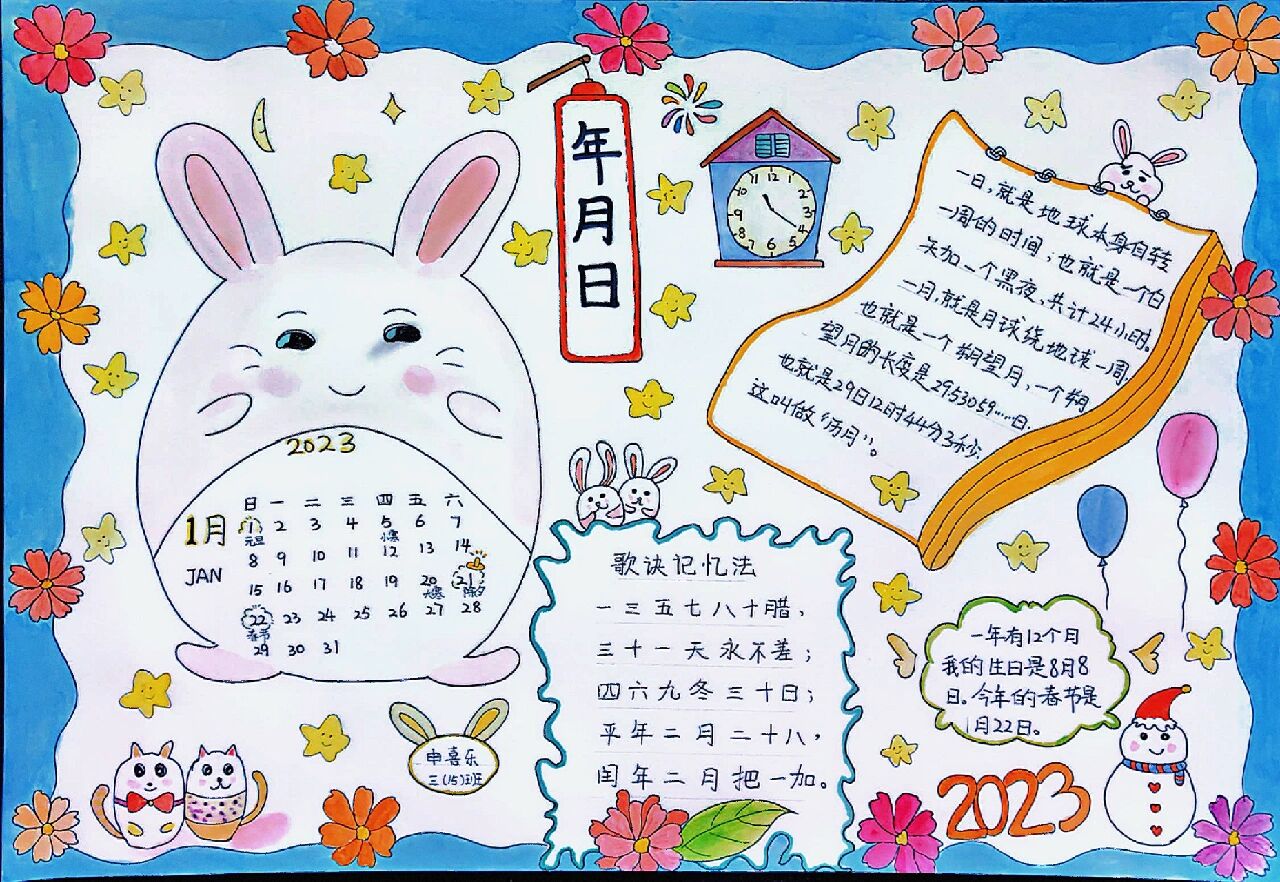 年月日
12
1
2
3
4
5
6
7
8
9
10
11
一日，就是地球本身自转
一周的时间，也就是一个白
天加一个黑夜，共计24小时。
二月，就是月球绕地球一周，
也就是一个朔望月，一个朔
望月的长度是29.53059……日.
也就是29日12时44分3秒.
这叫做“历月”。
2023
1月
JAN
日 一 二 三 四 五 六
1 2 3 4 5 6 7
元旦 小寒
8 9 10 11 12 13 14
15 16 17 18 19 20 21
大寒 除夕
22 23 24 25 26 27 28
春节
29 30 31
歌诀记忆法
一三五七八十腊，
三十一天永不差；
四六九冬三十日；
平年二月二十八，
闰年二月把一加。
一年有12个月
我的生日是8月8
日。今年的春节是
1月22日。
申喜乐
三(15)班
2023